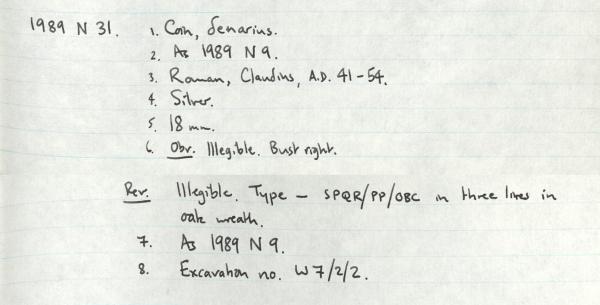 1989 N 31. 1. Coin, denarius.
2. As 1989 N 9.
3. Roman, Claudius, A.D. 41-54.
4. Silver.
5. 18 mm.
6. Obv. Illegible. Bust right.
Rev. Illegible. Type – SPQR/PP/OBC in three lines in
oak wreath.
7. As 1989 N 9.
8. Excavation no. W7/2/2.